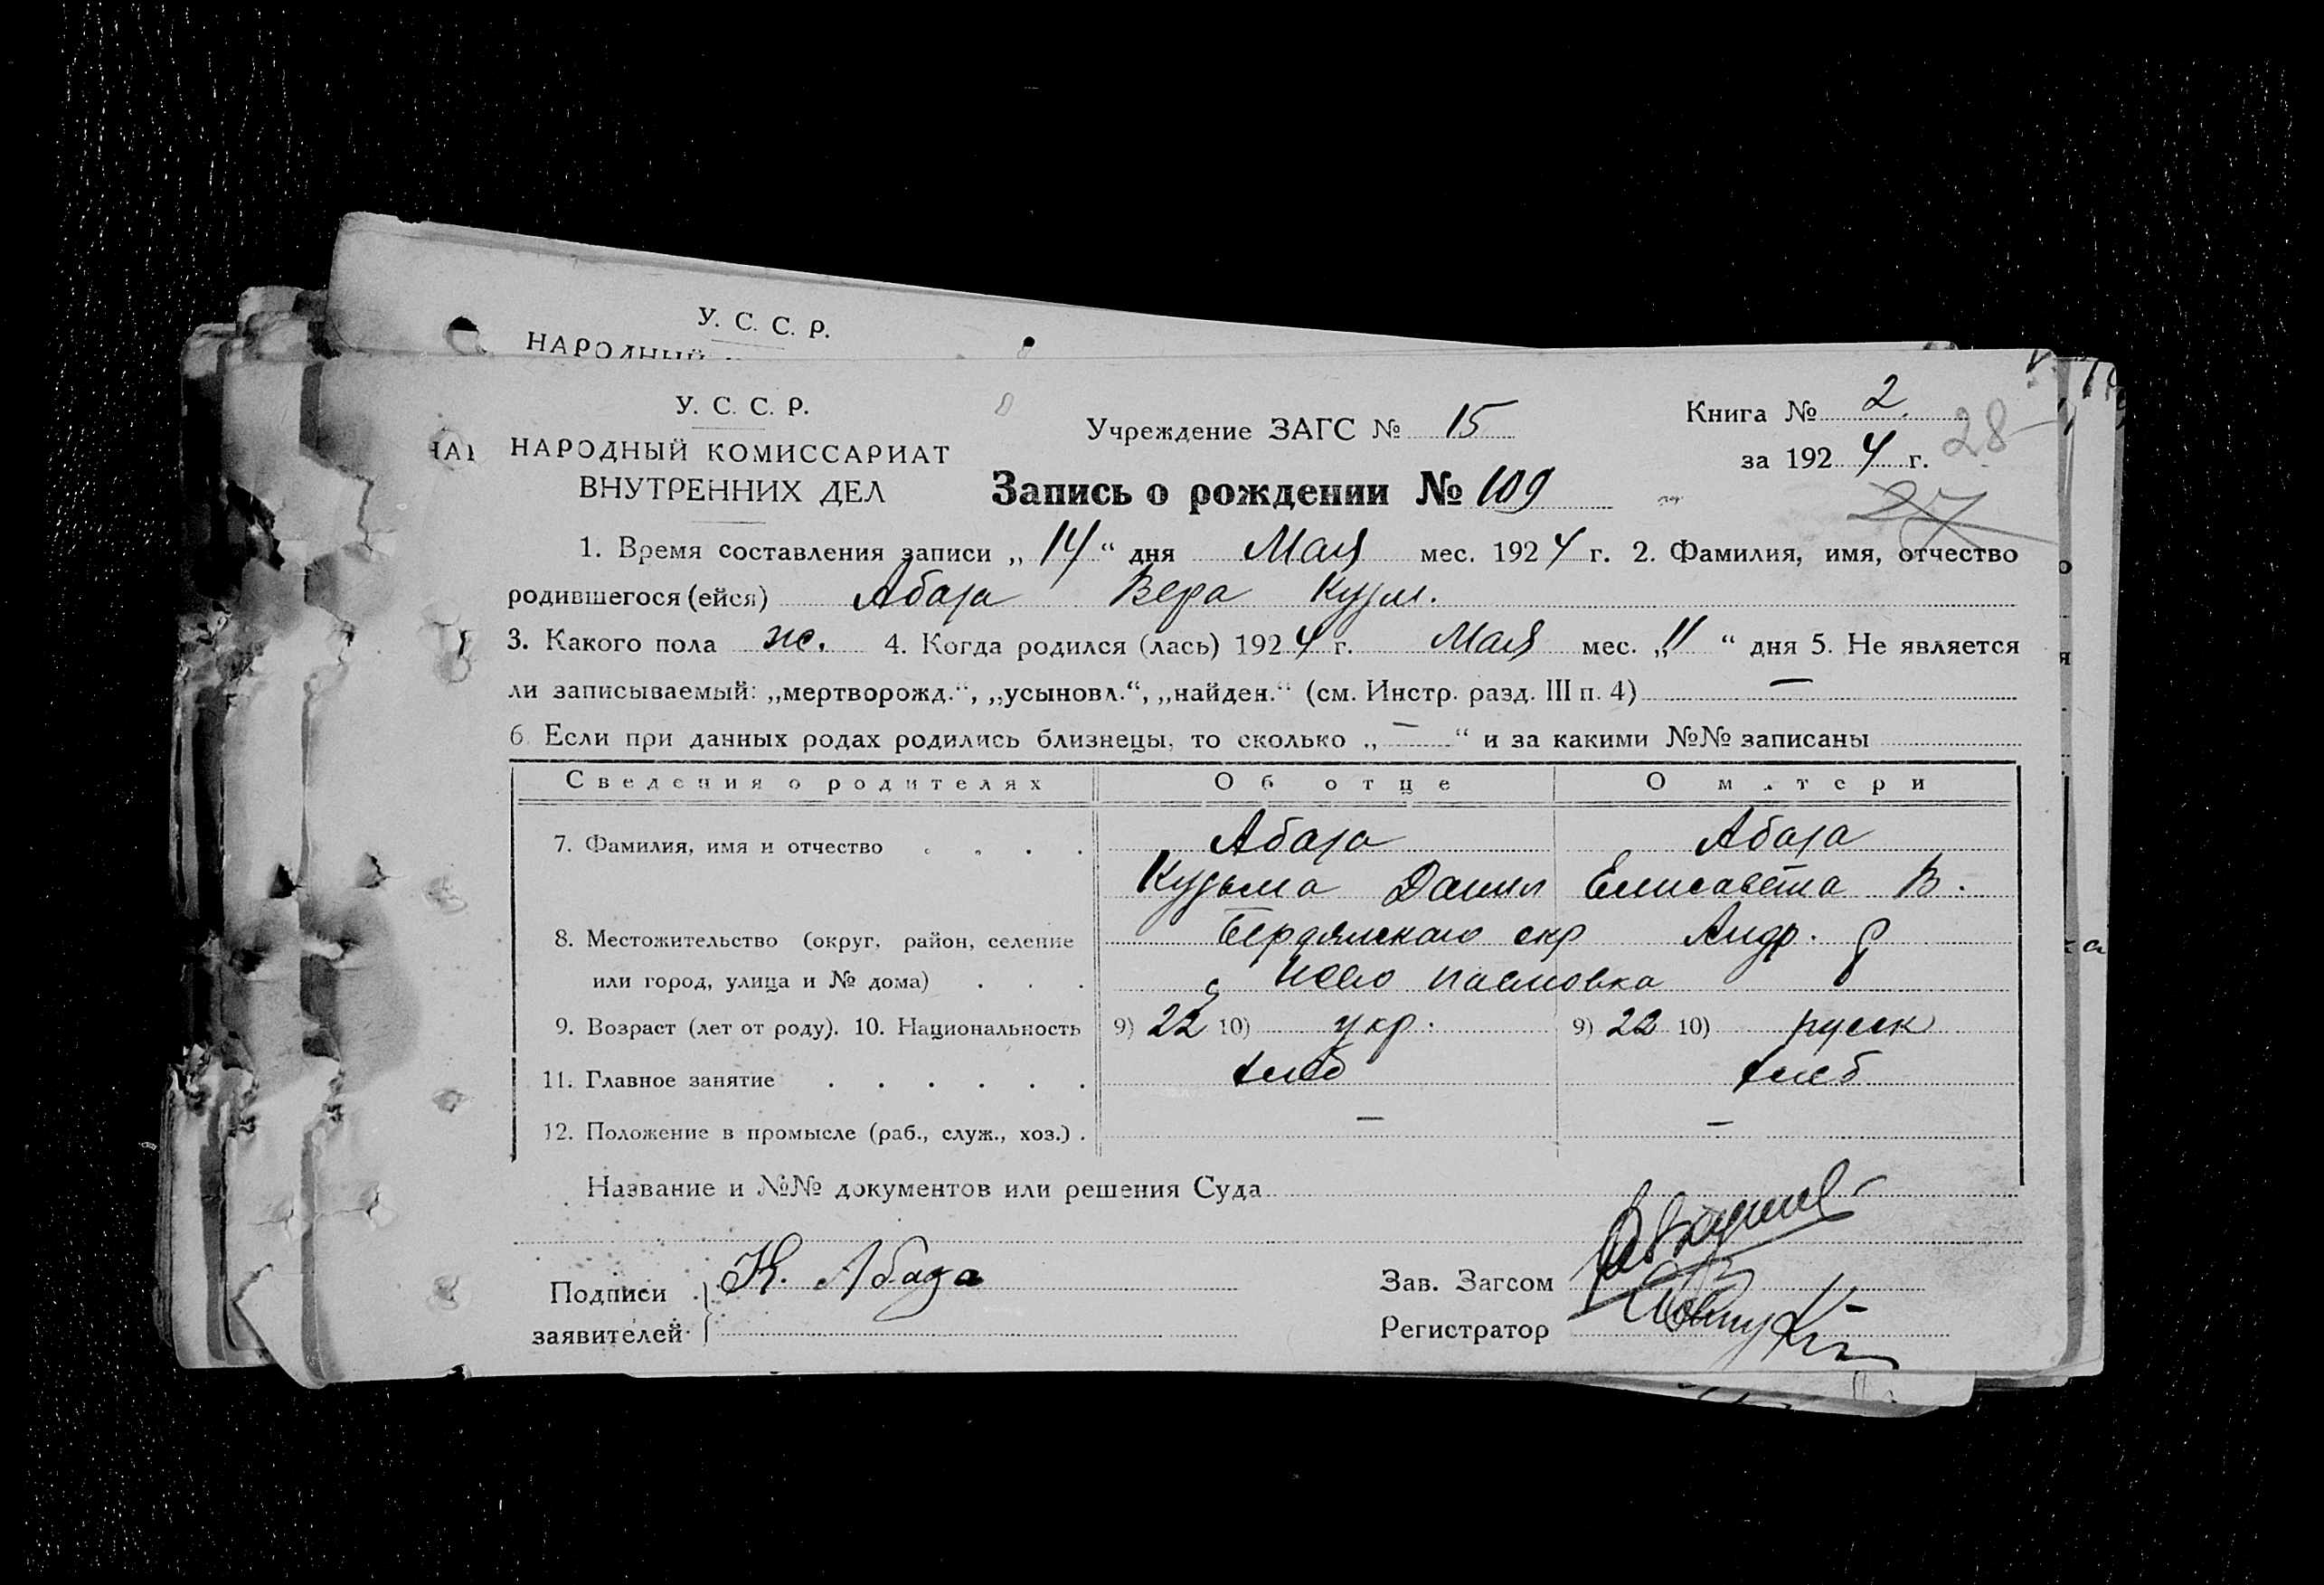 У. С. С. Р.
НАРОДНЫЙ
У. С. С. Р.
НАРОДНЫЙ КОМИССАРИАТ
ВНУТРЕННИХ ДЕЛ
Учреждение ЗАГС № 15
Книга № 2.
за 1924 г. 28
27
Запись о рождении № 109
1. Время составления записи „14“ дня Мая мес. 1924 г. 2. Фамилия, имя, отчество
родившегося (ейся) Абаза Вера Кузм.
3. Какого пола ж. 4. Когда родился (лась) 1924 г. Мая мес. „11“ дня 5. Не является
ли записываемый: „мертворожд.“, „усыновл.“, „найден.“ (см. Инстр. разд. III п. 4) —
6. Если при данных родах родились близнецы, то сколько „—“ и за какими №№ записаны
Сведения о родителях Об отце О матери
7. Фамилия, имя и отчество . . . . Абаза Абаза
Кузьма Данил Елисавета В.
8. Местожительство (округ, район, селение Бердянского окр Андр. р
или город, улица и № дома) . . . с Ново Павловка
9. Возраст (лет от роду). 10. Национальность 9) 22 10) укр. 9) 22 10) русск
11. Главное занятие . . . . . . хлеб хлеб
12. Положение в промысле (раб., служ., хоз.) . — —
Название и №№ документов или решения Суда
Подписи К. Абаза
заявителей
Зав. Загсом
Регистратор